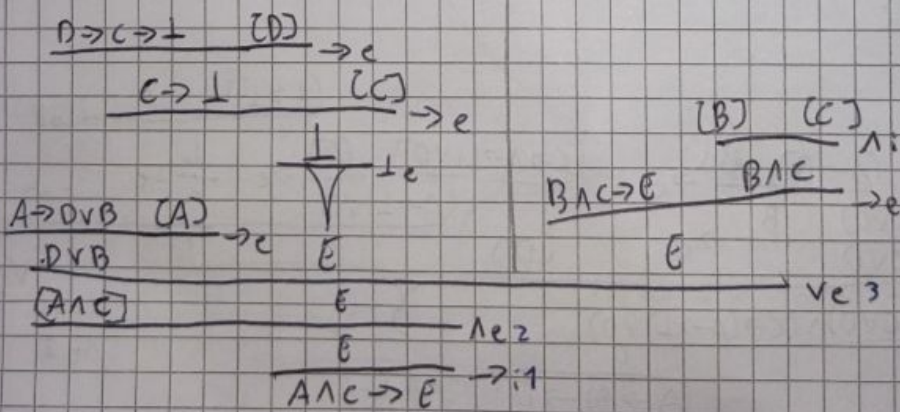 D→C→⊥ [D] →e
C→⊥ [C] →e
⊥ ⊥e
[B] [C] ∧i
B∧C→E B∧C →e
A→D∨B [A] →e
D∨B E E
∨e 3
[A∧C] E
∧e 2
E
→i 1
A∧C→E